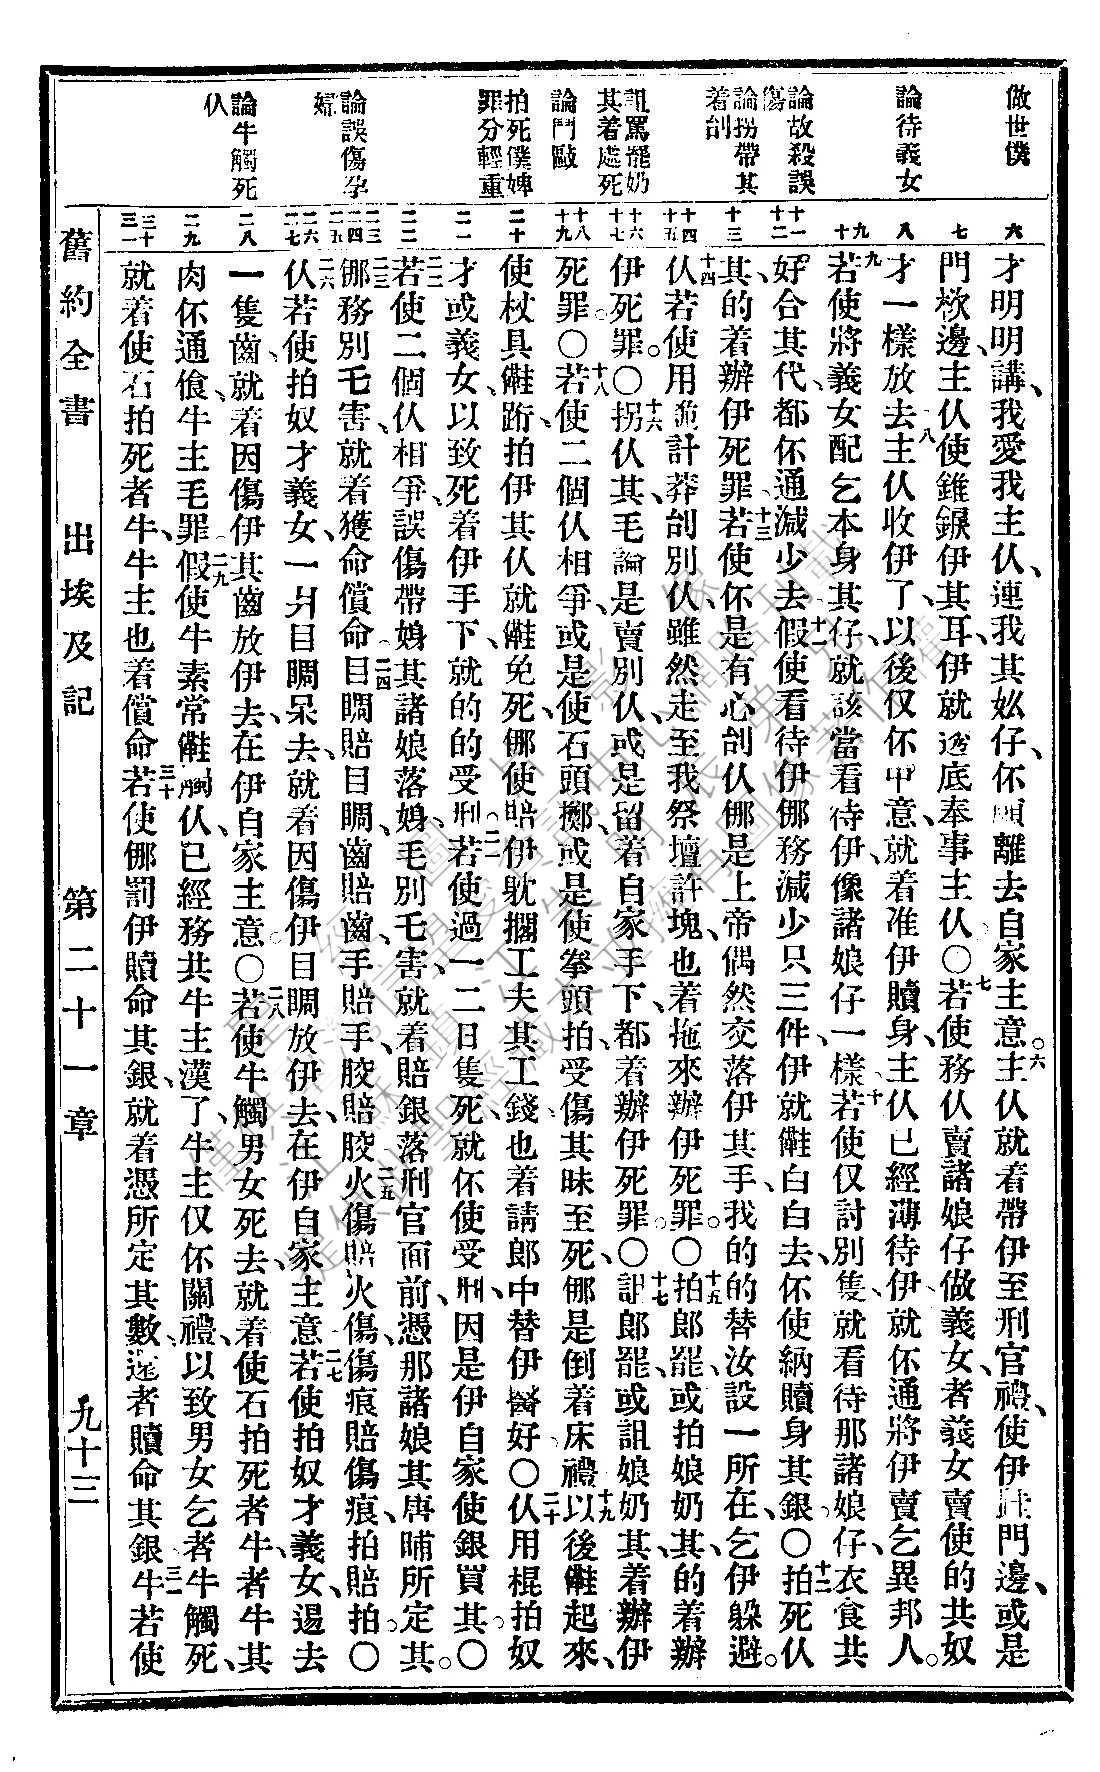 做世僕
論待義女
論故殺誤
傷
論拐帶其
着刣
詛罵罷奶
其着處死
論鬥毆
拍死僕婢
罪分輕重
論誤傷孕
婦
論牛觸死
仈
六
七
八
九
十
十一
十二
十三
十四
十五
十六
十七
十八
十九
二十
二一
二二
二三
二四
二五
二六
二七
二八
二九
三十
三一
才明明講、我愛我主仈、連我其妣仔、伓願離去自家主意。○六主仈就着帶伊至刑官禮、使伊門邊、或是
門桹邊、主仈使錐伊其耳、伊就透底奉事主仈。○七若使務仈賣諸娘仔做義女者義女賣使的共奴
才一樣放去八主仈收伊了、以後仅伓中意、就着准伊贖身、主仈已經薄待伊就伓通將伊賣乞異邦人。
九若使將義女配乞本身其仔、就該當看待伊、像諸娘仔一樣十若使仅討別隻、就看待那諸娘仔、衣食共
好合其代、都伓通減少去十一假使看待伊、㑚務減少只三件、伊就白白去、伓使納贖身其銀。○十二拍死仈
其、的着辦伊死罪十三若使伓是有心刣仈、㑚是上帝偶然交落伊其手、我的的替汝設一所在、乞伊躲避。
十四仈若使用詭計莽刣別仈、雖然走至我祭壇許塊、也着拖來辦伊死罪。○十五拍郎罷、或拍娘奶其、的着辦
伊死罪。○十六拐仈其、毛論是賣別仈、或是留着自家手下、都着辦伊死罪。○十七詛郎罷、或詛娘奶其、着辦伊
死罪。○十八若使二個仈相爭、或是使石頭擲、或是使拳頭拍、受傷其昧至死、㑚是倒着床禮十九以後起來、
使杖具跡、拍伊其仈就免死、㑚使賠伊躭擱工夫其工錢、也着請郎中替伊醫好。○二十仈用棍拍奴
才或義女、以致死着伊手下、就的的受刑。二一若使過一二日隻死、就伓使受刑、因是伊自家使銀買其。○
二二若使二個仈相爭、誤傷帶㛂其諸娘落㛂、毛別乇害、就着賠銀落刑官面前、憑那諸娘其唐晡所定其。
二三㑚務別乇害、就着獲命償命二四目睭賠目睭、齒賠齒、手賠手、骹賠骹二五火傷賠火傷、傷痕賠傷痕、拍賠拍。○
二六仈若使拍奴才義女、一爿目睭呆去、就着因傷伊目睭放伊去、在伊自家主意二七若使拍奴才義女、逿去
一隻齒、就着因傷伊其齒放伊去、在伊自家主意。○二八若使牛觸男女死去、就着使石拍死者牛、者牛其
肉伓通食、牛主毛罪二九假使牛素常觸仈、已經務共牛主漢了、牛主仅伓關禮、以致男女乞者牛觸死、
就着使石拍死者牛、牛主也着償命三十若使㑚罰伊贖命其銀、就着憑所定其數、還者贖命其銀三一牛若使
舊約全書　出埃及記　第二十一章　九十三